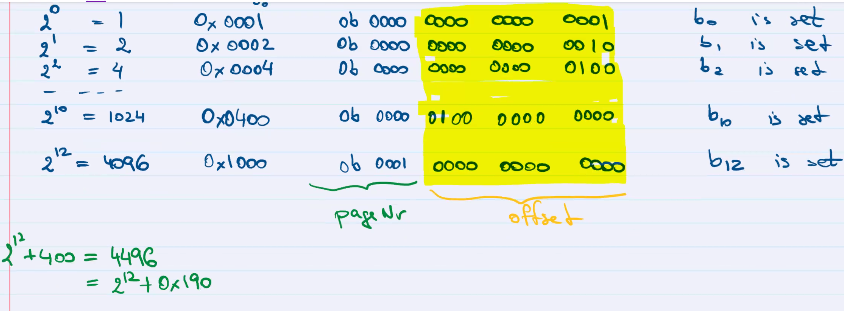 2^0 = 1 0x0001 0b 0000 0000 0000 0001 b0 is set
2^1 = 2 0x0002 0b 0000 0000 0000 0010 b1 is set
2^2 = 4 0x0004 0b 0000 0000 0000 0100 b2 is set
- - - -
2^10 = 1024 0x0400 0b 0000 0100 0000 0000 b10 is set
2^12 = 4096 0x1000 0b 0001 0000 0000 0000 b12 is set
pageNr offset
2^12 + 400 = 4496
= 2^12 + 0x190